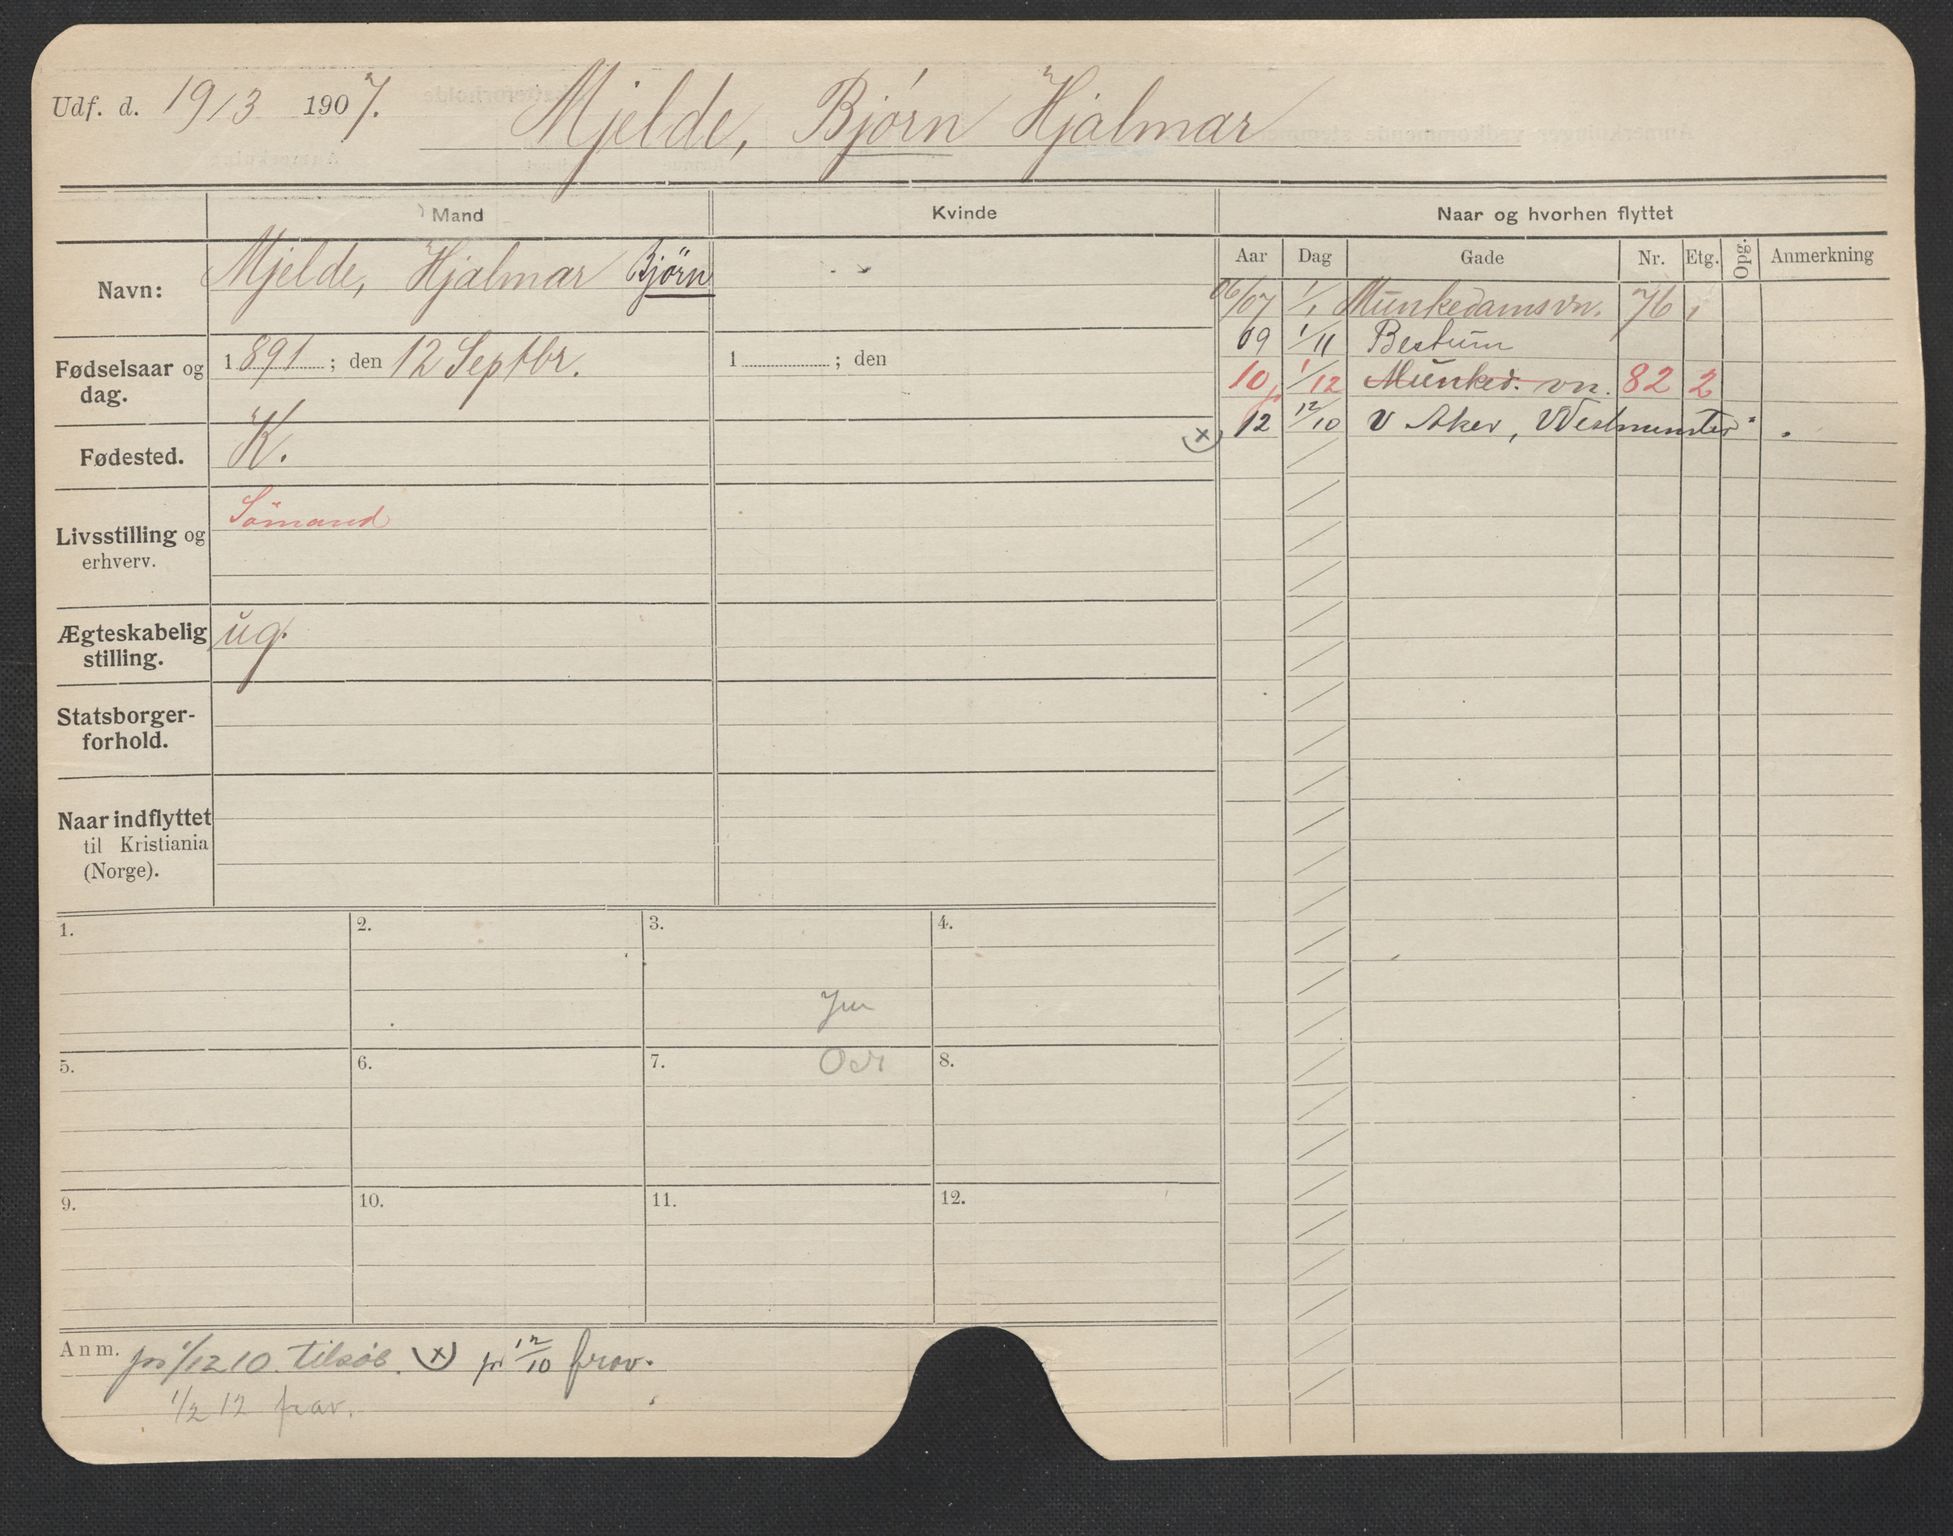 Udf. d. 19/3 1907. Mjelde, Bjørn Hjalmar
Mand Kvinde Naar og hvorhen flyttet
Aar Dag Gade Nr. Etg. Opg. Anmerkning
Navn: Mjelde, Hjalmar Bjørn
06/07 1/1 Munkedamsvn. 76 1
09 1/11 Bestum
Fødselsaar og dag. 1891; den 12 Septbr. 1 ; den
10 1/12 Munked. vn. 82 2
(x) 12 12/10 V Aker, Westminster".
Fødested. K.
Livsstilling og erhverv. Sömand
Ægteskabelig stilling. ug.
Statsborger-
forhold.
Naar indflyttet
til Kristiania
(Norge).
1. 2. 3. 4.
5. 6. 7. 8.
9. 10. 11. 12.
Anm. 1/12 10. (x) 12/10 frav.
1/2 12 frav.